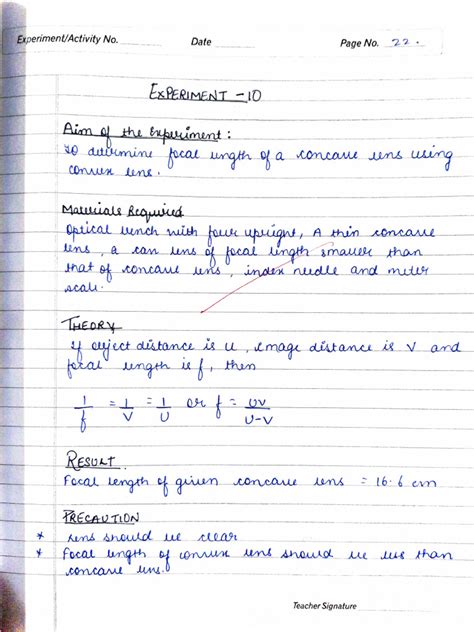 Experiment/Activity No. Date Page No. 22.
EXPERIMENT - 10
Aim of the Experiment :
To determine focal length of a concave lens using
convex lens.
Materials Required
Optical bench with four upright, A thin concave
lens, a can lens of focal length smaller than
that of concave lens, index needle and meter
scale.
THEORY
If object distance is u, image distance is V and
focal length is f, then
1/f = 1/V = 1/U or f = UV/U-V
RESULT
Focal length of given concave lens = 16.6 cm
PRECAUTION
* lens should be clear
* Focal length of convex lens should be less than
concave lens.
Teacher Signature